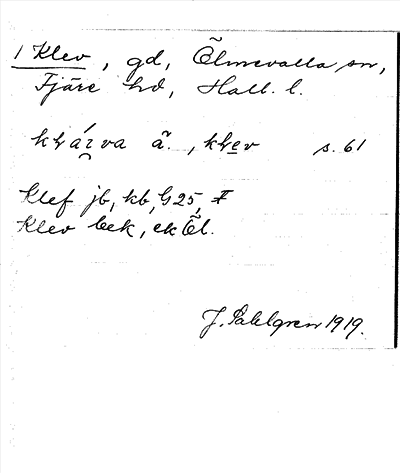 1 Klev, gd, Ölmevalla sn,
Fjäre hd, Hall. l.
s. 61
Klef jb, kb, G25, #
Klev bek, ek Öl.
J. Sahlgren 1919.